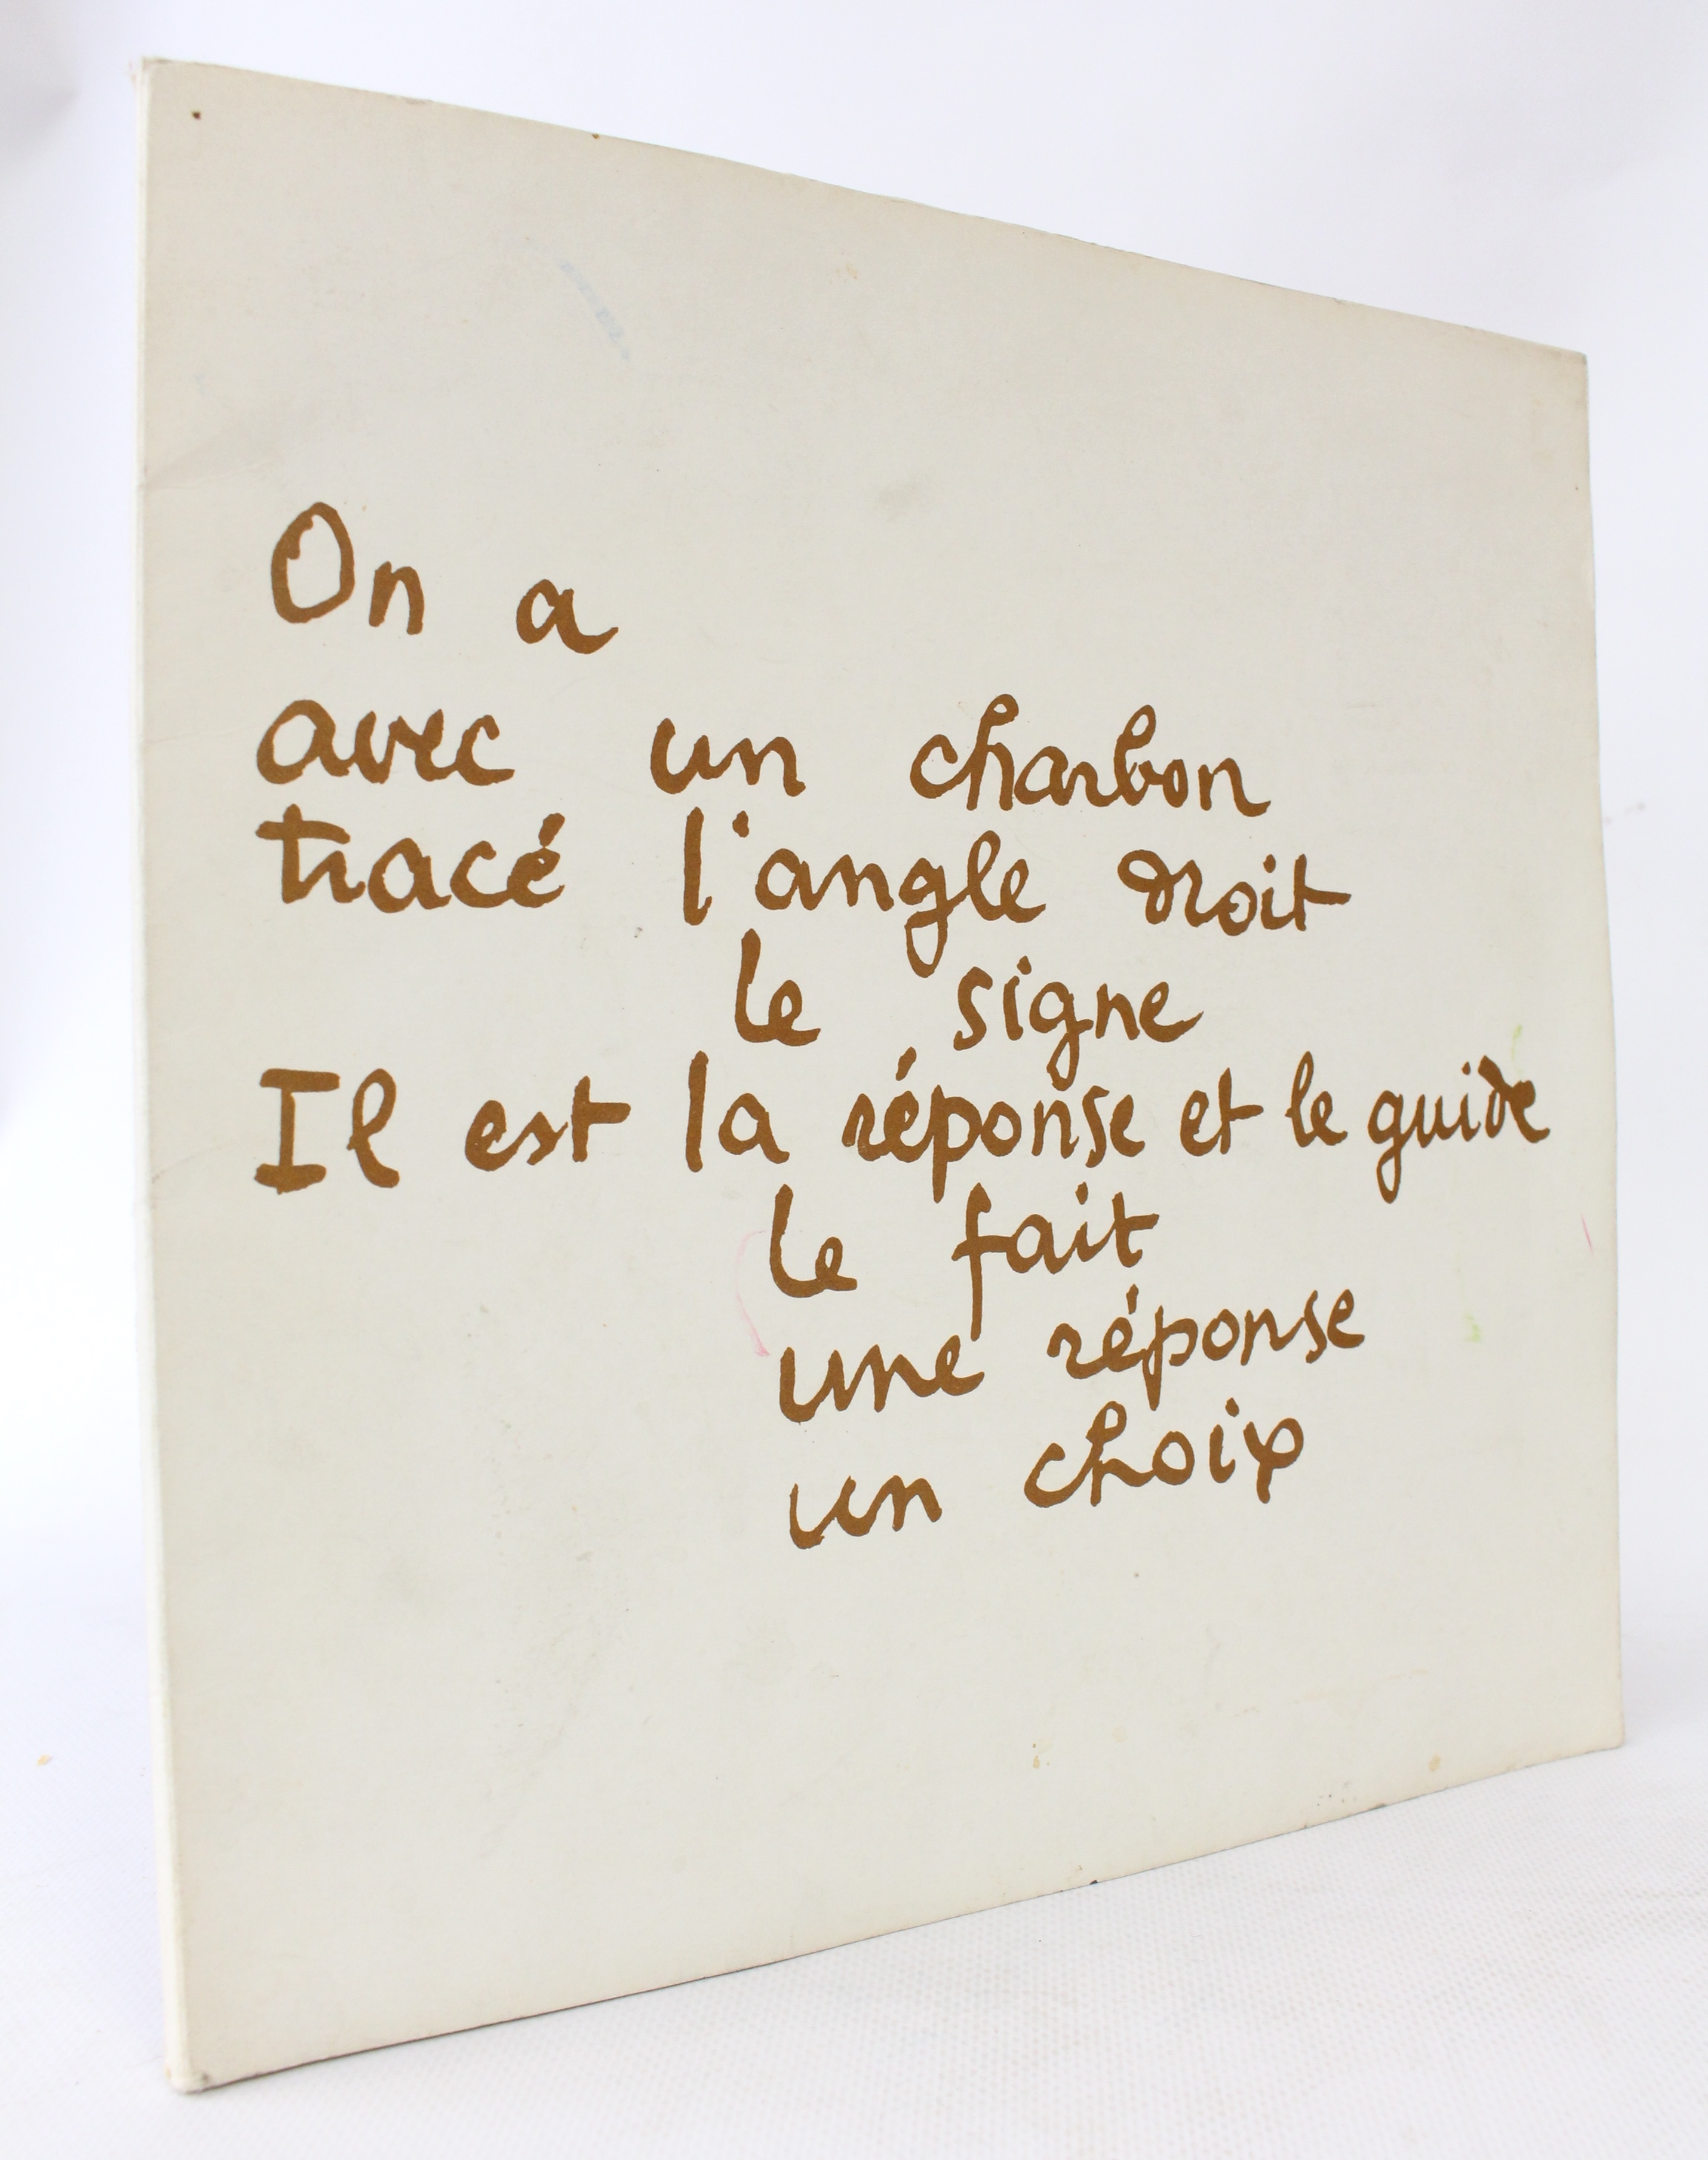 On a
avec un charbon
tracé l'angle droit
le signe
Il est la réponse et le guide
le fait
une réponse
un choix